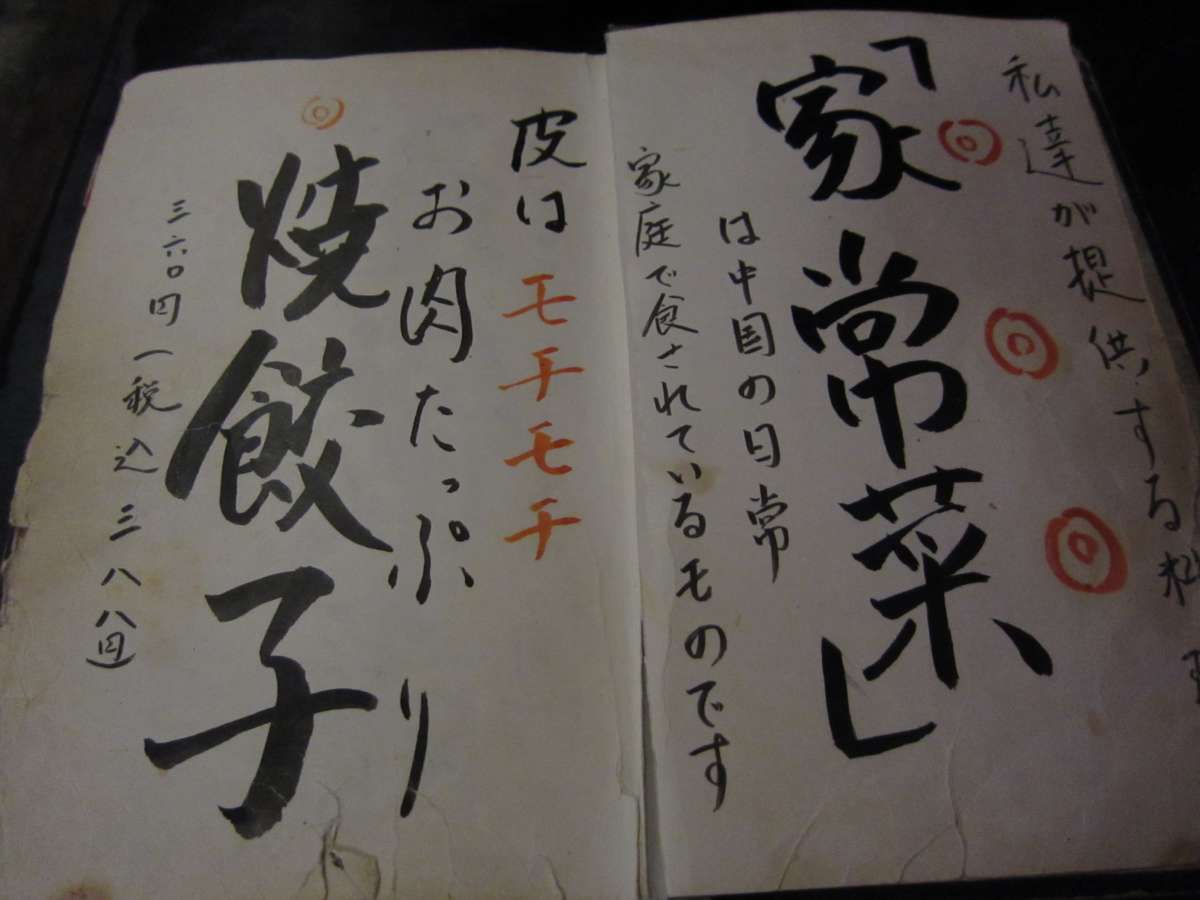 私達が提供する料理
「家常菜」
は中国の日常
家庭で食されているモのです
皮はモチモチ
お肉たっぷり
焼餃子
三六〇円(税込三八八円)